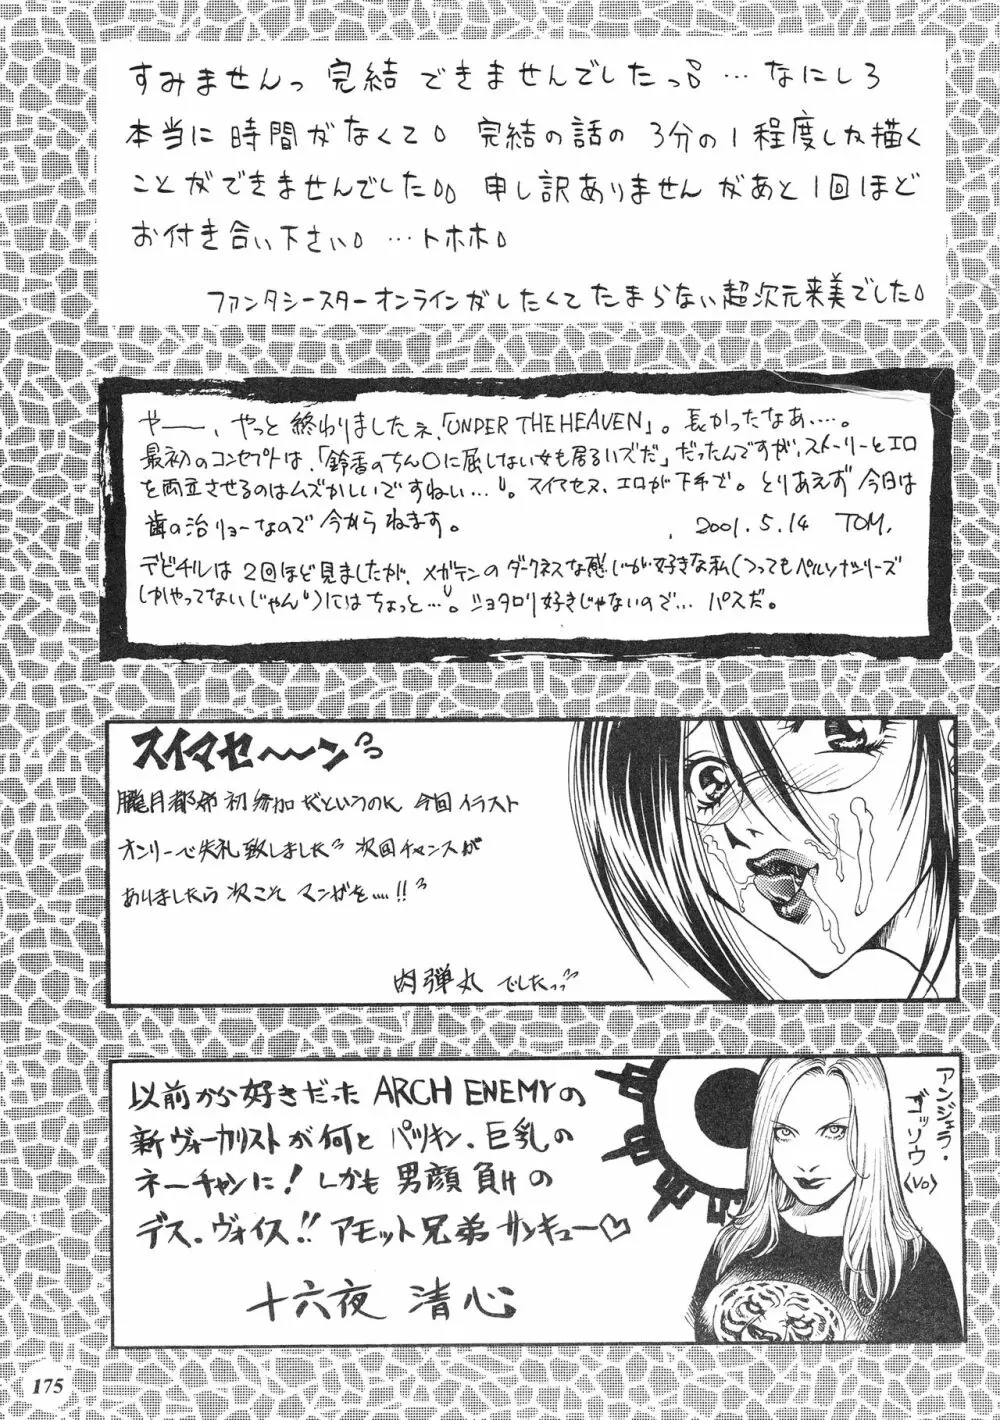 すみませんっ 完結 できませんでしたっ… なにしろ
本当に 時間がなくて。 完結の話の 3分の1程度しか描く
ことができませんでした。 申し訳ありませんがあと1回ほど
お付き合い下さい。 …トホホ。
ファンタシースターオンラインがしたくてたまらない超次元来美でした。
やー、やっと終わりましたネ、「UNDER THE HEAVEN」。長かったなあ……。
最初のコンセプトは、「鈴香のちん○に屈しない女も居るハズだ」だったんですが、ストーリーとエロ
を両立させるのはムズかしいですねい…。スイマセヌ、エロが下手で。とりあえず今日は
歯の治リョーなので今からねます。
2001.5.14 TOM.
デビチルは2回ほど見ましたが、メガテンのダークネスな感じが好きな私(つってもペルソナシリーズ
しかやってないじゃん)にはちょっと…。ショタロリ好きじゃないので… パスだ。
スイマセ〜〜ン
朧月都希初参加だというのに 今回イラスト
オンリーで失礼致しました 次回チャンスが
ありましたら 次こそ マンガを……!!
肉弾丸 でしたっっ
以前から好きだった ARCH ENEMYの
新ヴォーカリストが何と パツキン、巨乳の
ネーチャンに! しかも 男顔負けの
デス・ヴォイス!! アモット兄弟サンキュー♡
十六夜 清心
アンジェラ・
ゴッソウ
〈Vo〉
175